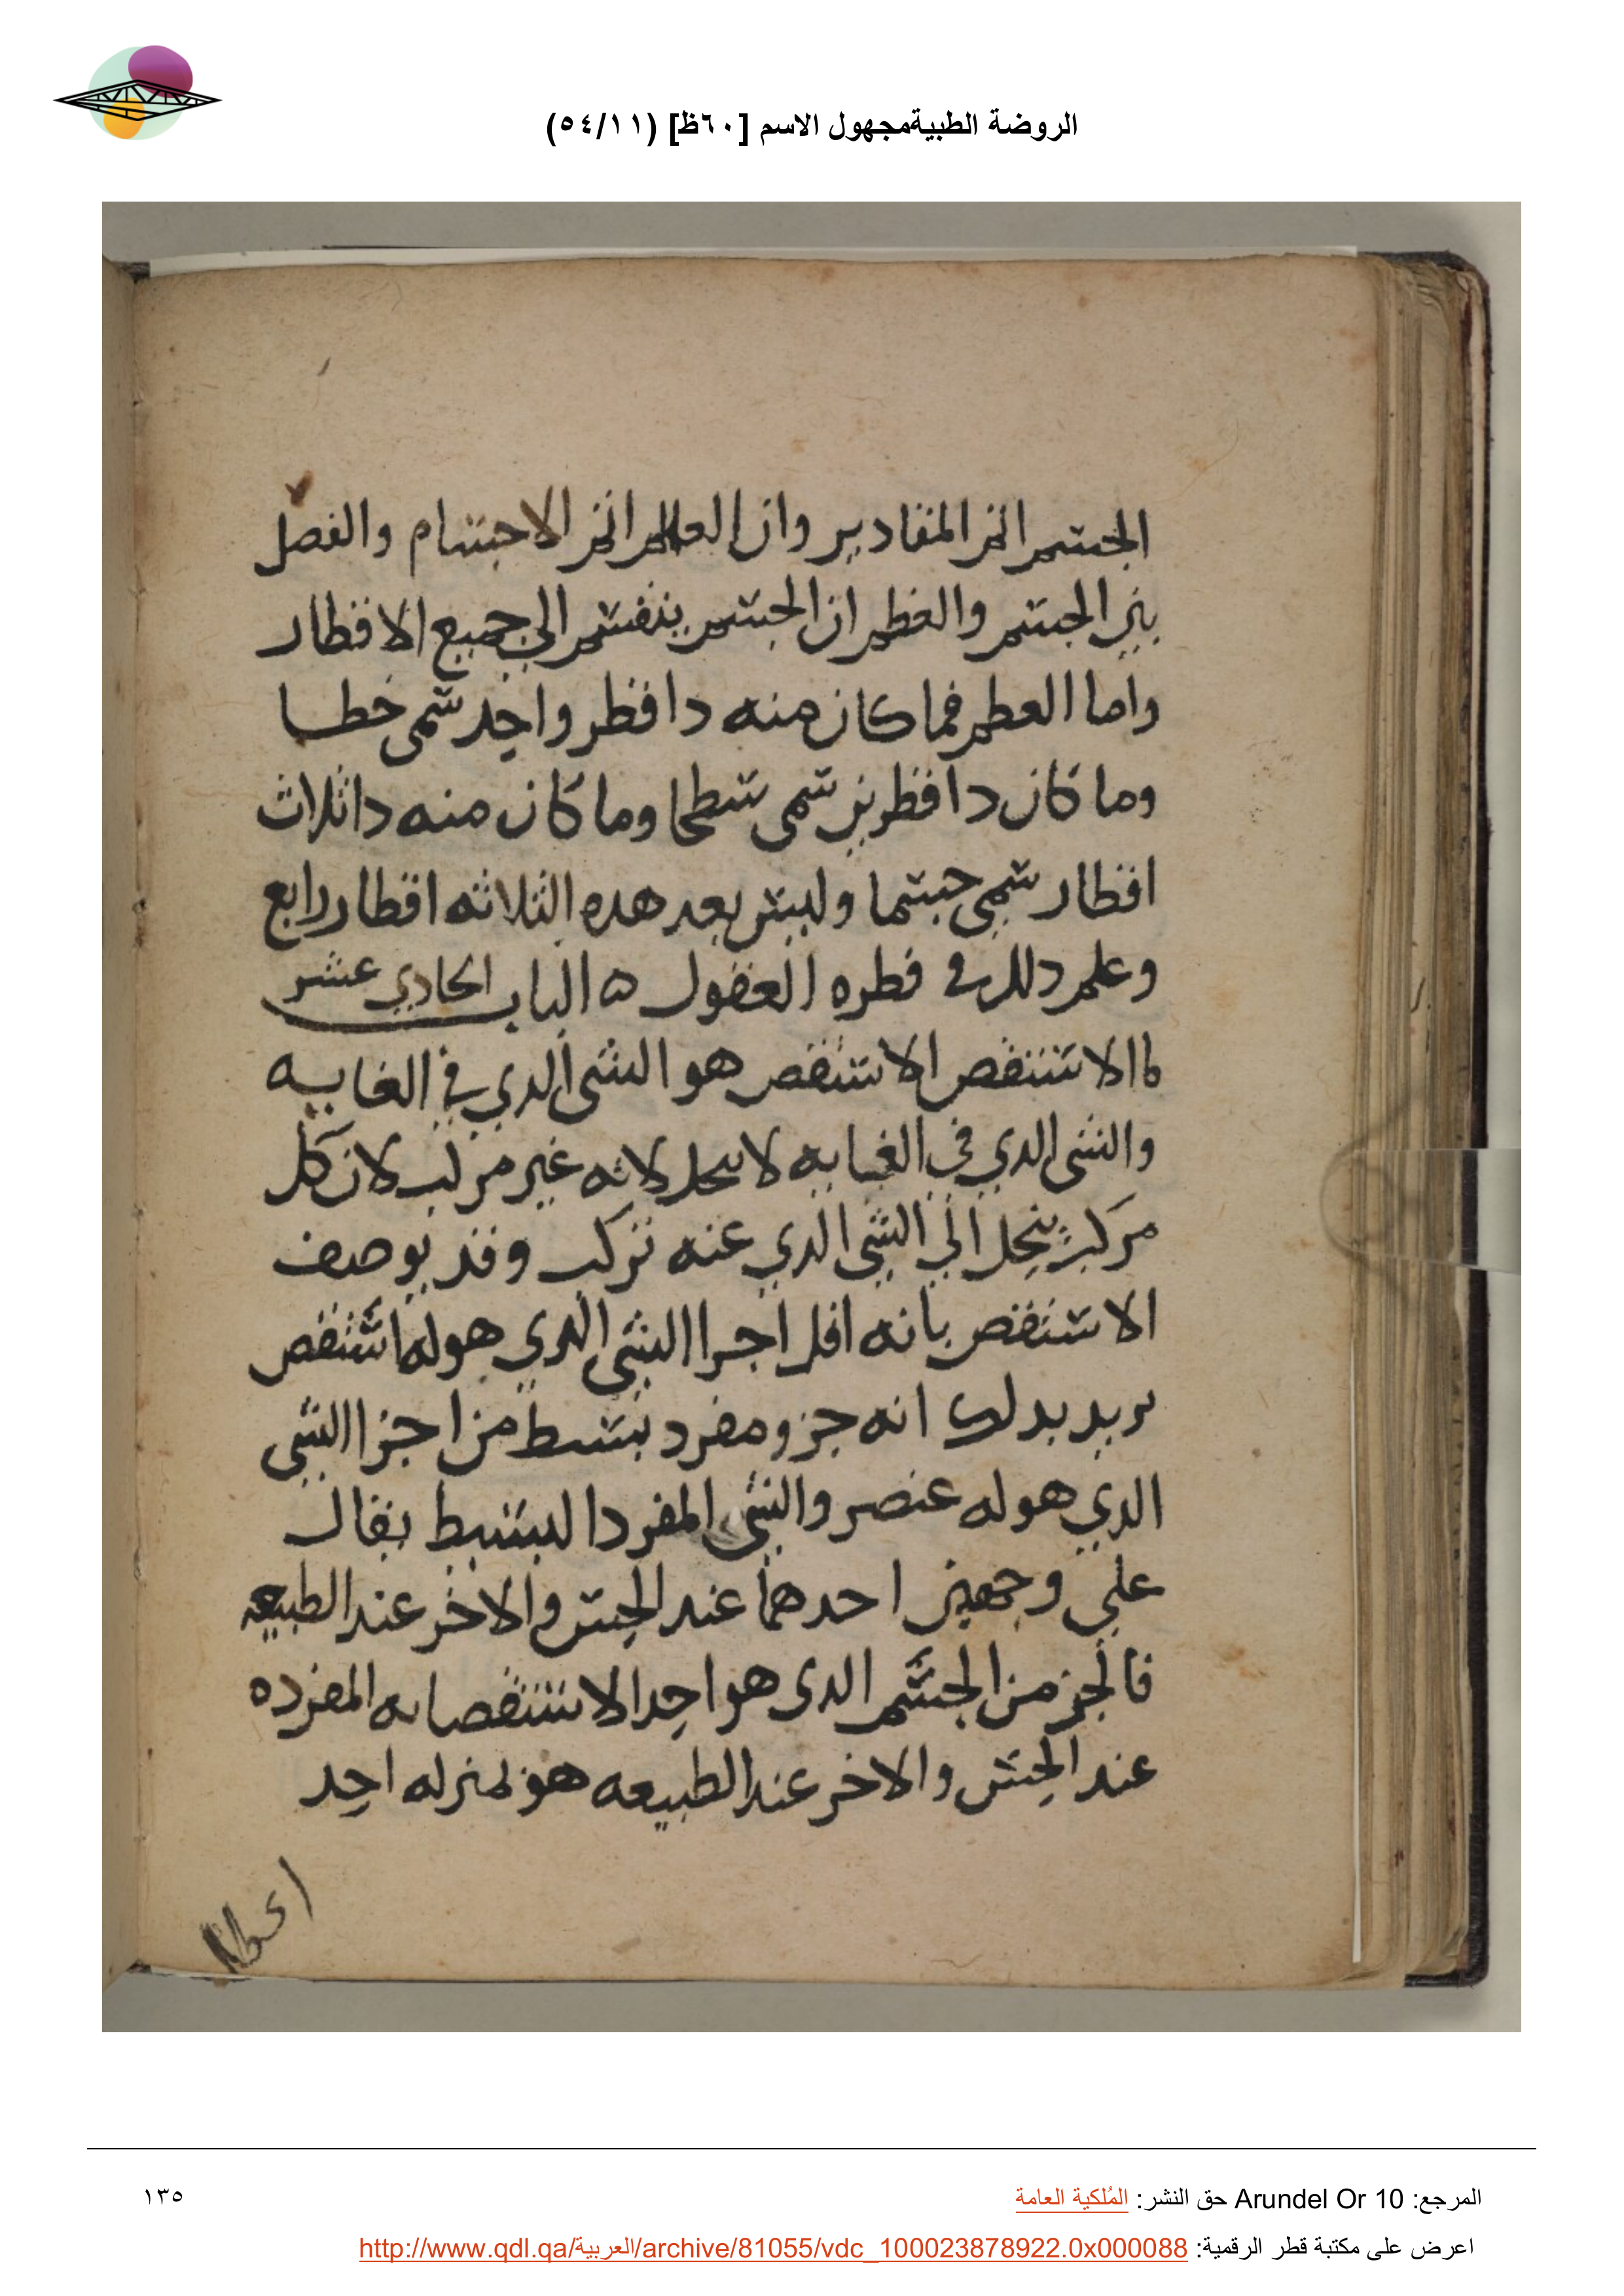 الروضة الطبيةمجهول الاسم [٦٠ظ] (٥٤/١١)
الجسم اتم المقادير وان العالم اتم الاجسام والفصل
بين الجسم والعظم ان الجسم ينقسم الي جميع الاقطار
واما العظم فما كان منه دا قطر واحد سمى خطا
وما كان دا قطرين سمى سطحا وما كان منه دا ثلاث
اقطار سمي جسما وليس بعد هده الثلاثه اقطار رابع
وعلم دلك في فطره العقول ه الباب الحادي عشر
ما الاستقص الاستقص هو الشى الدي في الغايه
والشى الدي في الغايه لا ينحل لانه غير مركب لان كل
مركب ينحل الي الشي الدي عنه تركب وقد يوصف
الاستقص بانه اقل اجزا الشي الدي هو له استقص
يريد بدلك انه جزو مفرد بسيط من اجزا الشي
الدي هو له عنصر والشي المفرد البسيط يقال
علي وجهين احدهما عند الحس والاخر عند الطبيعه
فالجز من الجسم الدى هو احد الاستقصاته المفرده
عند الحس والاخر عند الطبيعه هو بمنزله احد
المرجع: Arundel Or 10 حق النشر: المُلكية العامة
١٣٥
اعرض على مكتبة قطر الرقمية: http://www.qdl.qa/العربية/archive/81055/vdc_100023878922.0x000088